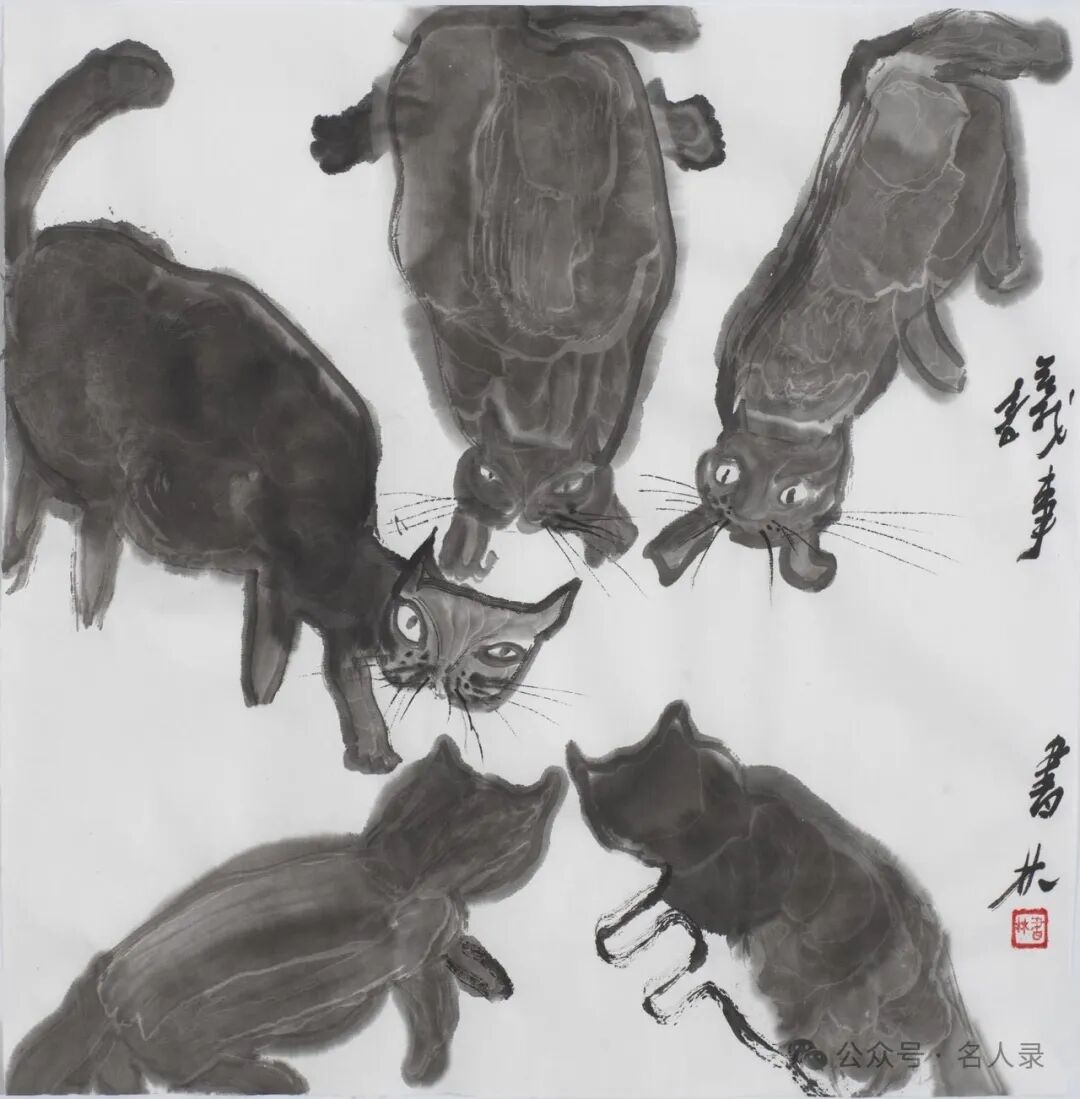 議事
書林
書林
公众号·名人录